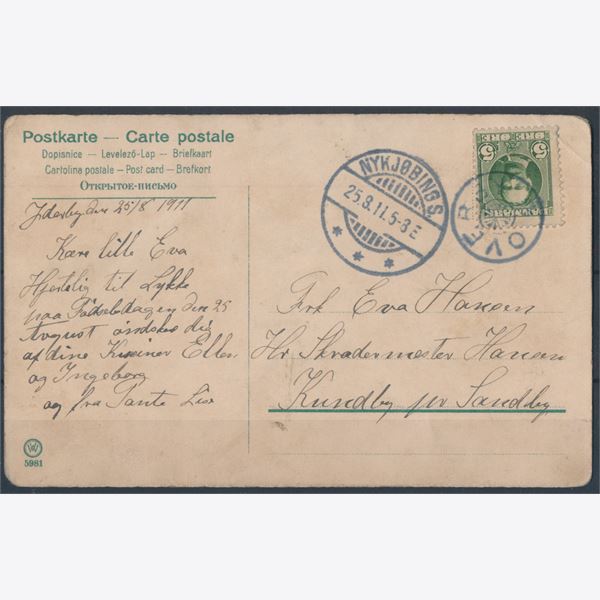 Postkarte — Carte postale
Dopisnice — Levelező-Lap — Briefkaart
Cartolina postale — Post card — Brefkort
Открытое-письмо
den 25/8 1911
Kære lille Eva
Hjertelig til Lykke
paa Fødselsdagen den 25
August ønskes dig
af dine Kusiner Ellen
og Ingeborg
og fra Tante
W
5981
NYKJØBING S
25.8.11.5-8 E
OVER
5 5
DANMARK
Frk Eva Hansen
Hr. Skrædermester Hansen
Kundby pr Sandby